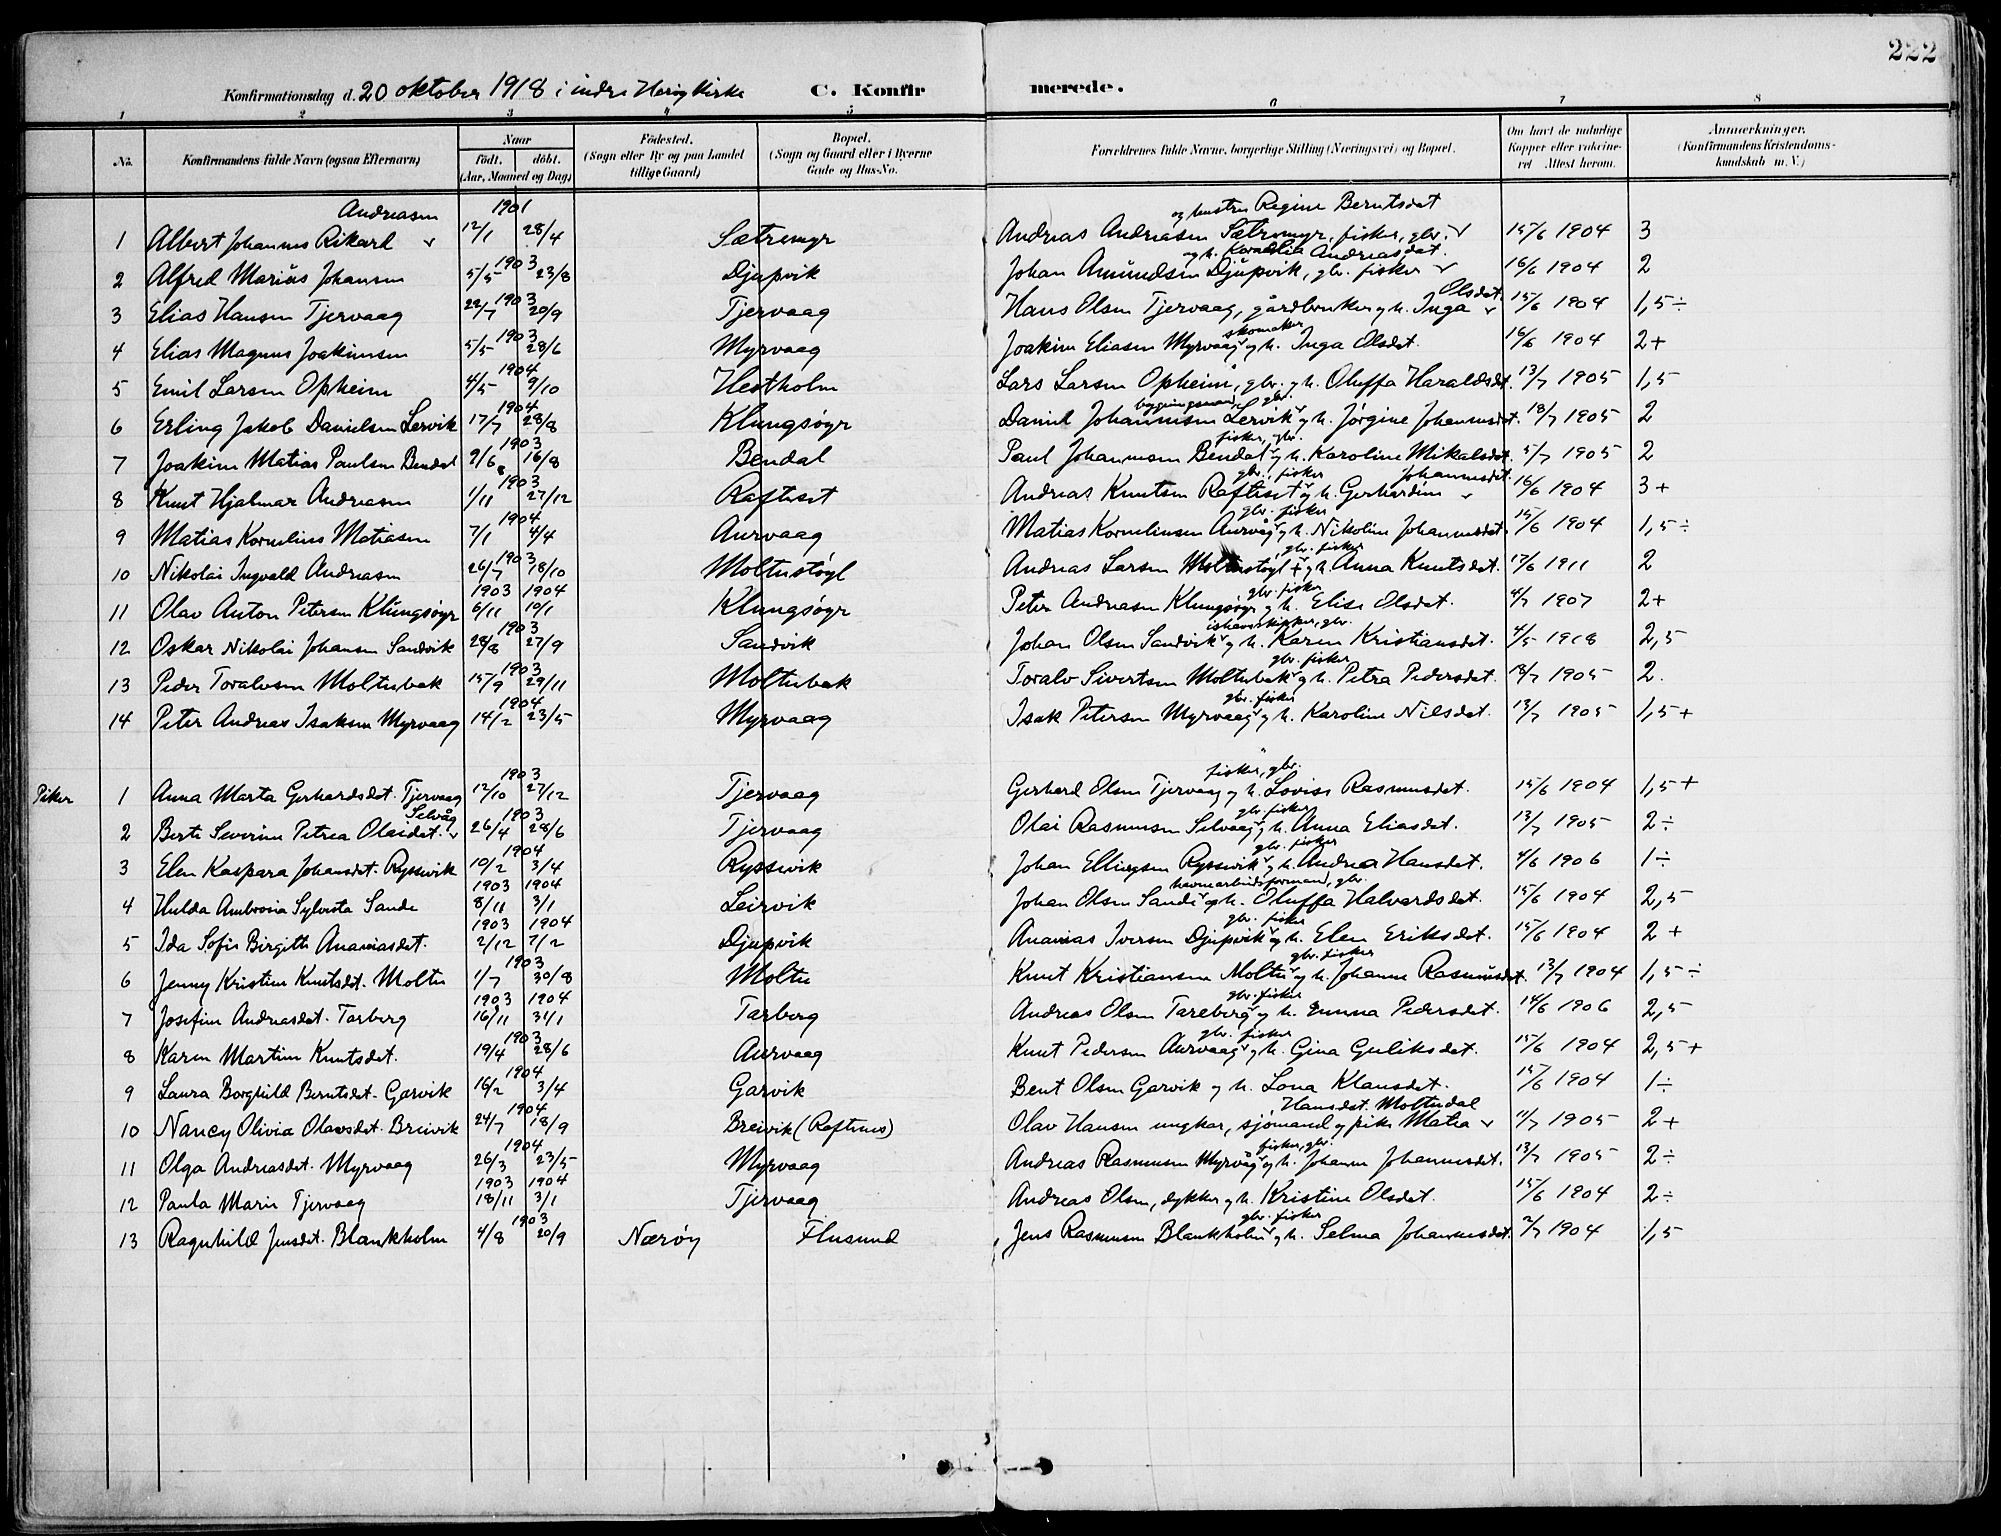 222
Konfirmationsdag d. 20 oktober 1918 i indre Herøy Kirke C. Konfirmerede.
1 2 3 4 5 6 7 8
No. Konfirmandens fulde Navn (ogsaa Efternavn) Naar födt. döbt. (Aar, Maaned og Dag) Födested. (Sogn eller By og paa Landet tillige Gaard) Bopæl. (Sogn og Gaard eller i Byerne Gade og Hus-No. Forældrenes fulde Navne, borgerlige Stilling (Næringsvei) og Bopæl. Om havt de naturlige Kopper eller vaksineret Attest herom. Anmærkninger. (Konfirmandens Kristendomskundskab m. V.)
Andreasen 1901 og hustru Regine Berntsdat
1 Albert Johannes Rikard 12/1 28/4 Sætremyr Andreas Andreasen Sætremyr, fisker, gbr. 15/6 1904 3
1903 og h. Kornelia Andreasdat.
2 Alfred Marius Johansen 5/5 23/8 Djupvik Johan Amundsen Djupvik, gbr. fisker 16/6 1904 2
1903 Olsdat.
3 Elias Hansen Tjervaag 22/7 20/9 Tjervaag Hans Olsen Tjervaag, gårdbruker og h. Inga 15/6 1904 1,5 ÷
1903 skomaker
4 Elias Magnus Joakimsen 5/5 28/6 Myrvaag Joakim Eliasen Myrvaag og h. Inga Olsdat. 16/6 1904 2+
1904
5 Emil Larsen Opheim 4/5 9/10 Hestholm Lars Larsen Opheim, gbr. og h. Oluffa Haraldsdat. 13/7 1905 1,5
1904 bygningsmand, gbr.
6 Erling Jakob Danielsen Lervik 17/7 28/8 Klungsøyr Daniel Johannesen Lervik og h. Jørgine Johannesdat. 18/7 1905 2
1903 fisker, gbr.
7 Joakim Matias Paulsen Bendal 9/6 16/8 Bendal Paul Johannesen Bendal og h. Karoline Mikalsdat. 5/7 1905 2
1903 gbr. fisker Johannesdat.
8 Knut Hjalmar Andreasen 1/11 27/12 Rafteset Andreas Knutsen Rafteset og h. Gerhardine 16/6 1904 3+
1904 gbr. fisker
9 Matias Kornelius Matiasen 7/1 4/4 Aurvaag Matias Korneliussen Aurvåg og h. Nikoline Johannesdat. 15/6 1904 1,5 ÷
1903 gbr. fisker
10 Nikolai Ingvald Andreasen 26/7 18/10 Moltustøyl Andreas Larsen Moltustøyl og h. Anna Knutsdat. 17/6 1911 2
1903 1904 gbr. fisker
11 Olav Anton Petersen Klungsøyr 6/11 10/1 Klungsøyr Peter Andreasen Klungsøyr og h. Elise Olsdat. 4/7 1907 2+
1903 ishavsskipper, gbr.
12 Oskar Nikolai Johansen Sandvik 28/8 27/9 Sandvik Johan Olsen Sandvik og h. Karen Kristiansdat. 4/5 1918 2,5
1903 gbr. fisker
13 Peder Toralvsen Moltubak 15/9 29/11 Moltubak Toralv Sivertsen Moltubak og h. Petra Pedersdat. 18/7 1905 2.
1904 gbr. fisker
14 Peter Andreas Isaksen Myrvaag 14/2 23/5 Myrvaag Isak Petersen Myrvaag og h. Karoline Nilsdat. 13/7 1905 1,5+
1903 fisker, gbr.
Piker 1 Anna Marta Gerhardsdat. Tjervaag 12/10 27/12 Tjervaag Gerhard Olsen Tjervaag og h. Lovise Rasmusdat. 15/6 1904 1,5+
Selvåg 1903 gbr. fisker
2 Berte Severine Petrea Olaidat. 26/4 28/6 Tjervaag Olai Rasmusen Selvaag og h. Anna Eliasdat. 13/7 1905 2 ÷
1904 gbr. fisker
3 Elen Kaspara Johansdat. Ryssevik 10/2 3/4 Ryssevik Johan Ellingsen Ryssevik og h. Andrea Hansdat. 4/6 1906 1 ÷
1903 1904 havnearbeidsformand, gbr.
4 Hulda Ambrosia Sylvesta Sande 8/11 3/1 Leirvik Johan Olsen Sande og h. Oluffa Halvardsdat. 15/6 1904 2,5
1903 1904 gbr. fisker
5 Ida Sofie Birgitte Ananiasdat. 2/12 7/2 Djupvik Ananias Iversen Djupvik og h. Elen Eriksdat. 15/6 1904 2+
1903 gbr. fisker
6 Jenny Kristine Knutsdat. Moltu 1/7 30/8 Moltu Knut Kristiansen Moltu og h. Johanne Rasmusdat. 13/7 1904 1,5 ÷
1903 1904 gbr. fisker
7 Josefine Andreasdat. Tarberg 16/11 31/1 Tarberg Andreas Olsen Tareberg og h. Emma Pedersdat. 14/6 1906 2,5
1903 gbr. fisker
8 Karen Martine Knutsdat. 19/4 28/6 Aurvaag Knut Pedersen Aurvaag og h. Gina Guliksdat. 15/6 1904 2,5+
1904
9 Laura Borghild Berntsdat. Garvik 16/2 3/4 Garvik Bent Olsen Garvik og h. Lona Klausdat. 15/6 1904 1 ÷
1904 Hansdat. Moltudal
10 Nancy Olivia Olavsdat. Breivik 24/7 18/9 Breivik (Raftenes) Olav Hansen ungkar, sjømand og pike Matea 11/7 1905 2+
1904 fisker, gbr.
11 Olga Andreasdat. Myrvaag 26/3 23/5 Myrvaag Andreas Rasmusen Myrvåg og h. Johanne Johannesdat. 13/7 1905 2 ÷
1903 1904
12 Paula Marie Tjervaag 18/11 3/1 Tjervaag Andreas Olsen, dykker og h. Kristine Olsdat. 15/6 1904 2 ÷
1903 gbr. fisker
13 Ragnhild Jensdat. Blankholm 4/8 20/9 Nærøy Flusund Jens Rasmusen Blankholm og h. Selma Johannesdat. 2/7 1904 1,5